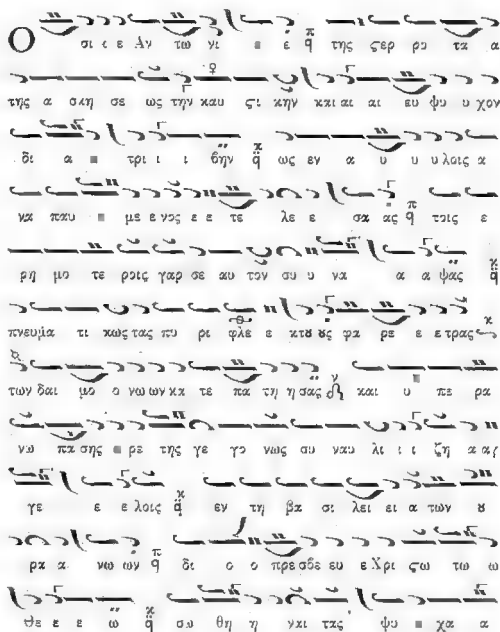 Ο σι ε Αν τω νι ε της ςερ ρο τα α
της α σκη σε ως την καυ ςι κην και αι αι ευ ψυ υ χον
δι α τρι ι ι βην ως εν α υ υ υ λοις α
να παυ με ε νος ε ε τε λε ε σα ας τοις ε
ρη μο τε ροις γαρ σε αυ τον συ υ να α α ψας
πνευμα τι κως τας πυ ρι φλε ε κτȣ ȣς φα ρε ε ε τρας
των δαι μο ο νω ων κα τε πα τη η σας και υ πε ρα
νω πα σης ρε της γε γο νως συ ναυ λι ι ι ζη α αγ
γε ε ε λοις εν τη βα σι λει ει α των ȣ
ρα α νω ων δι ο ο πρεσβε ευ ε Χρι ςω τω ω
Θε ε ε ω σω θη η ναι τας ψυ χα α